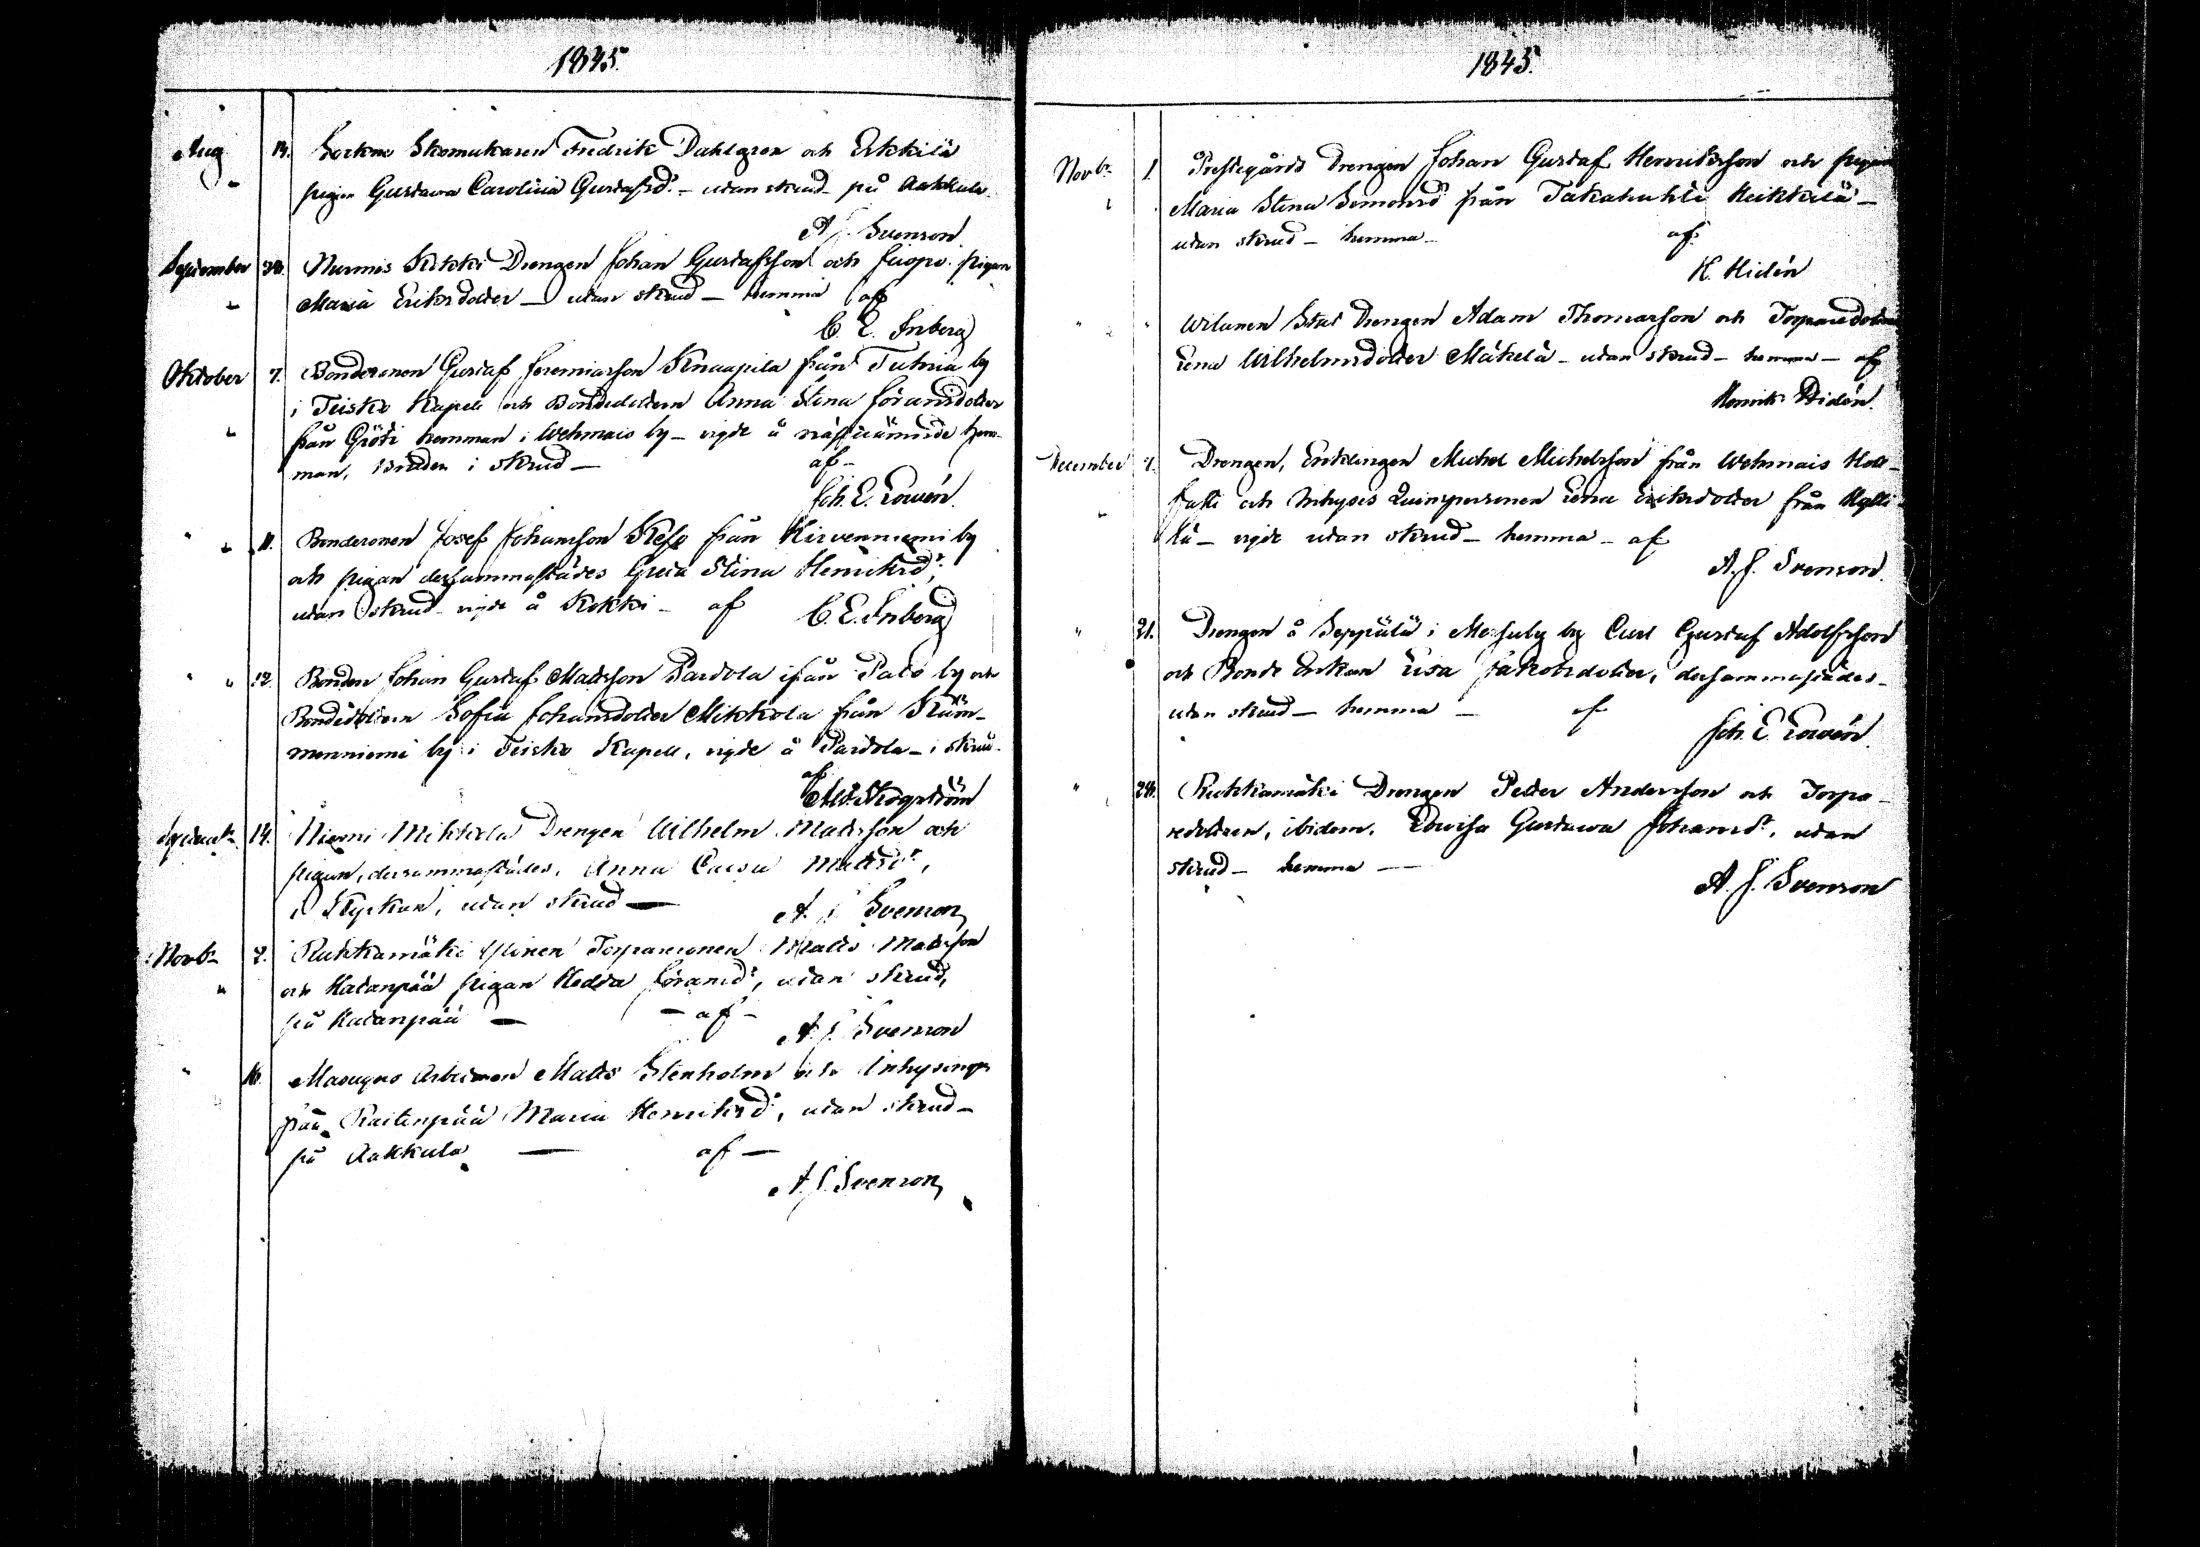 1845.
Aug 14. Sockne Skomakaren Fredrik Dahlgren och Erkkilä
pigan Gustava Carolina Gustafsd:r – utan skrud på Aakkula
A. J. Svenson
September 28. Nurmis Kokki Drengen Johan Gustafsson och pigan
Maria Eriksdotter – utan skrud – hemma af
C. E. Inberg
Oktober 7. Bondesonen Gustaf Jeremiasson Knaapila från by
i Teisko Kapell och Bondedottern Anna Stina Göransdotter
från Gröti hemman i Wehmais by – vigde å hem-
man, bruden i skrud – af –
Joh. E. Lowén.
" " 11. Bondesonen Josef Johansson från Hirvenniemi by
och pigan dersammastädes Greta Stina Henriksd:r,
utan skrud – vigde å Kokki – af C. E. Inberg
" " 12. Bonden Johan Gustaf Matsson Pardola ifrån Palo by och
Bondedottern Sofia Johansdotter Mikkola från Käm-
menniemi by i Teisko Kapell, vigde å Pardola – i skrud
af
Skogström
14. Niemi Mikkola Drengen Wilhelm Matsson och
pigan, dersammastädes, Anna Caisa Mattsd:r,
i Kyrkan, utan skrud —
A. J. Svenson
Novb:r 2. Ruhkamäki Ylinen Torparesonen Matts Matsson
och Hatanpää pigan Hedda Göransd:r, utan skrud,
på Hatanpää — – af –
A. J. Svenson
" 16. Masugns Arbetaren Matts Stenholm och Inhysings
från Raitinpää Maria Henriksd:r, utan skrud –
på Aakkula — af —
A. J. Svenson
1845.
Novb:r 1. Prestegårds Drengen Johan Gustaf Henriksson och pigan
Maria Stina Simonsd:r från Takahuhti Heikkilä –
utan skrud – hemma – af
H. Hidén
" " Drengen Adam Thomasson och Torparedottren
Lena Wilhelmsdotter Mäkelä – utan skrud – hemma – af
Henrik Hidén.
December 7. Drengen, Enklingen Michel Michelsson från Wehmais
och Inhyses Qvinspersonen Lena Eriksdotter från Hylli-
lä – vigde utan skrud – hemma – af
A. J. Svenson.
" 21. Drengen å Seppälä i Messuby by Carl Gustaf Adolfsson
och Bonde Enkan Lisa Jakobsdotter, dersammastädes –
utan skrud – hemma – af
Joh. E. Lowén.
" 28. Ruhkamäki Drengen Petter Andersson och Torpa-
redottren, ibidem, Lowisa Gustawa Johansd:r, utan
skrud – hemma —
A. J. Svenson